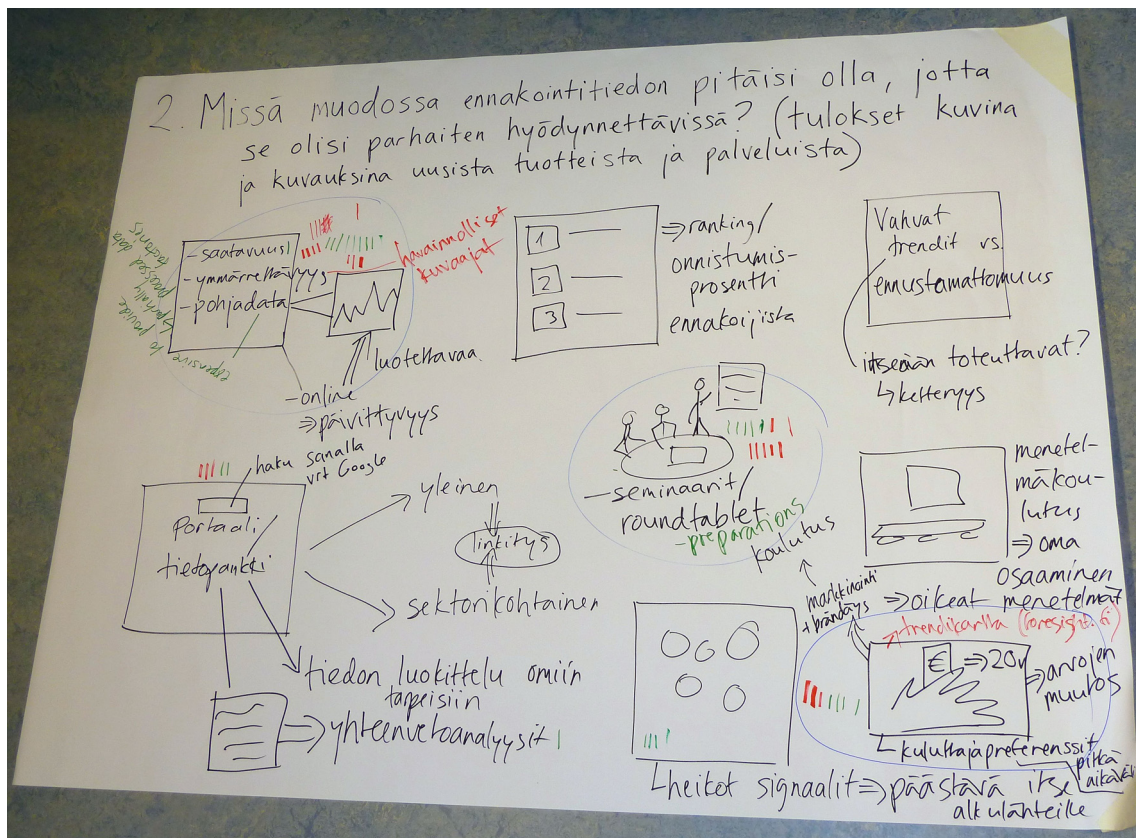 2. Missä muodossa ennakointitiedon pitäisi olla, jotta
se olisi parhaiten hyödynnettävissä? (tulokset kuvina
ja kuvauksina uusista tuotteista ja palveluista)
- saatavuus
- ymmärrettävyys
- pohjadata
havainnolliset
kuvaajat
expensive to provide
processed data
luotettavaa
- online
⇒ päivittyvyys
haku sanalla
vrt Google
1
2
3
⇒ ranking/
onnistumis-
prosentti
ennakoijista
Vahvat
trendit vs.
ennustamattomuus
itseään toteuttavat?
↳ ketteryys
Portaali/
tietopankki
yleinen
linkitys
sektorikohtainen
tiedon luokittelu omiin
tarpeisiin
⇒ yhteenvetoanalyysit
- seminaarit/
roundtablet
- preparations
koulutus
markkinointi
+ brändäys
menetel-
mäkou-
lutus
⇒ oma
osaaminen
⇒ oikeat menetelmät
trendikartta (foresight.fi)
€ ⇒ 20v
⇒ arvojen
muutos
↳ kuluttajapreferenssit
pitkä
↳ heikot signaalit ⇒ päästävä itse
alkulähteille